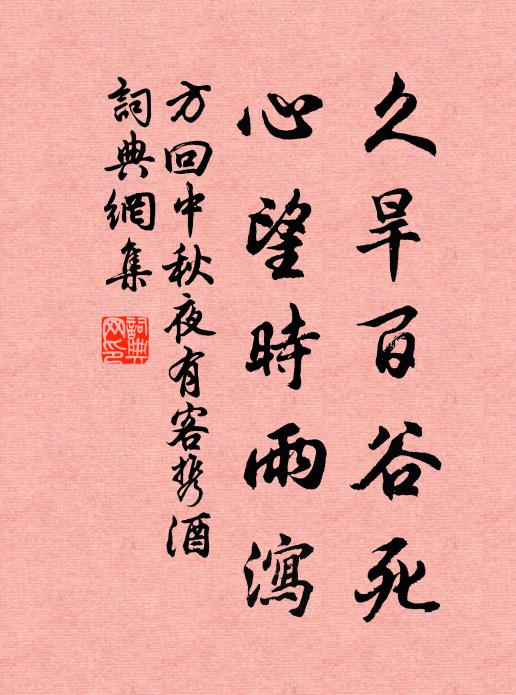 久旱百谷死
心望時雨瀉
方回中秋夜有客携酒
詞典網集
詞典網印